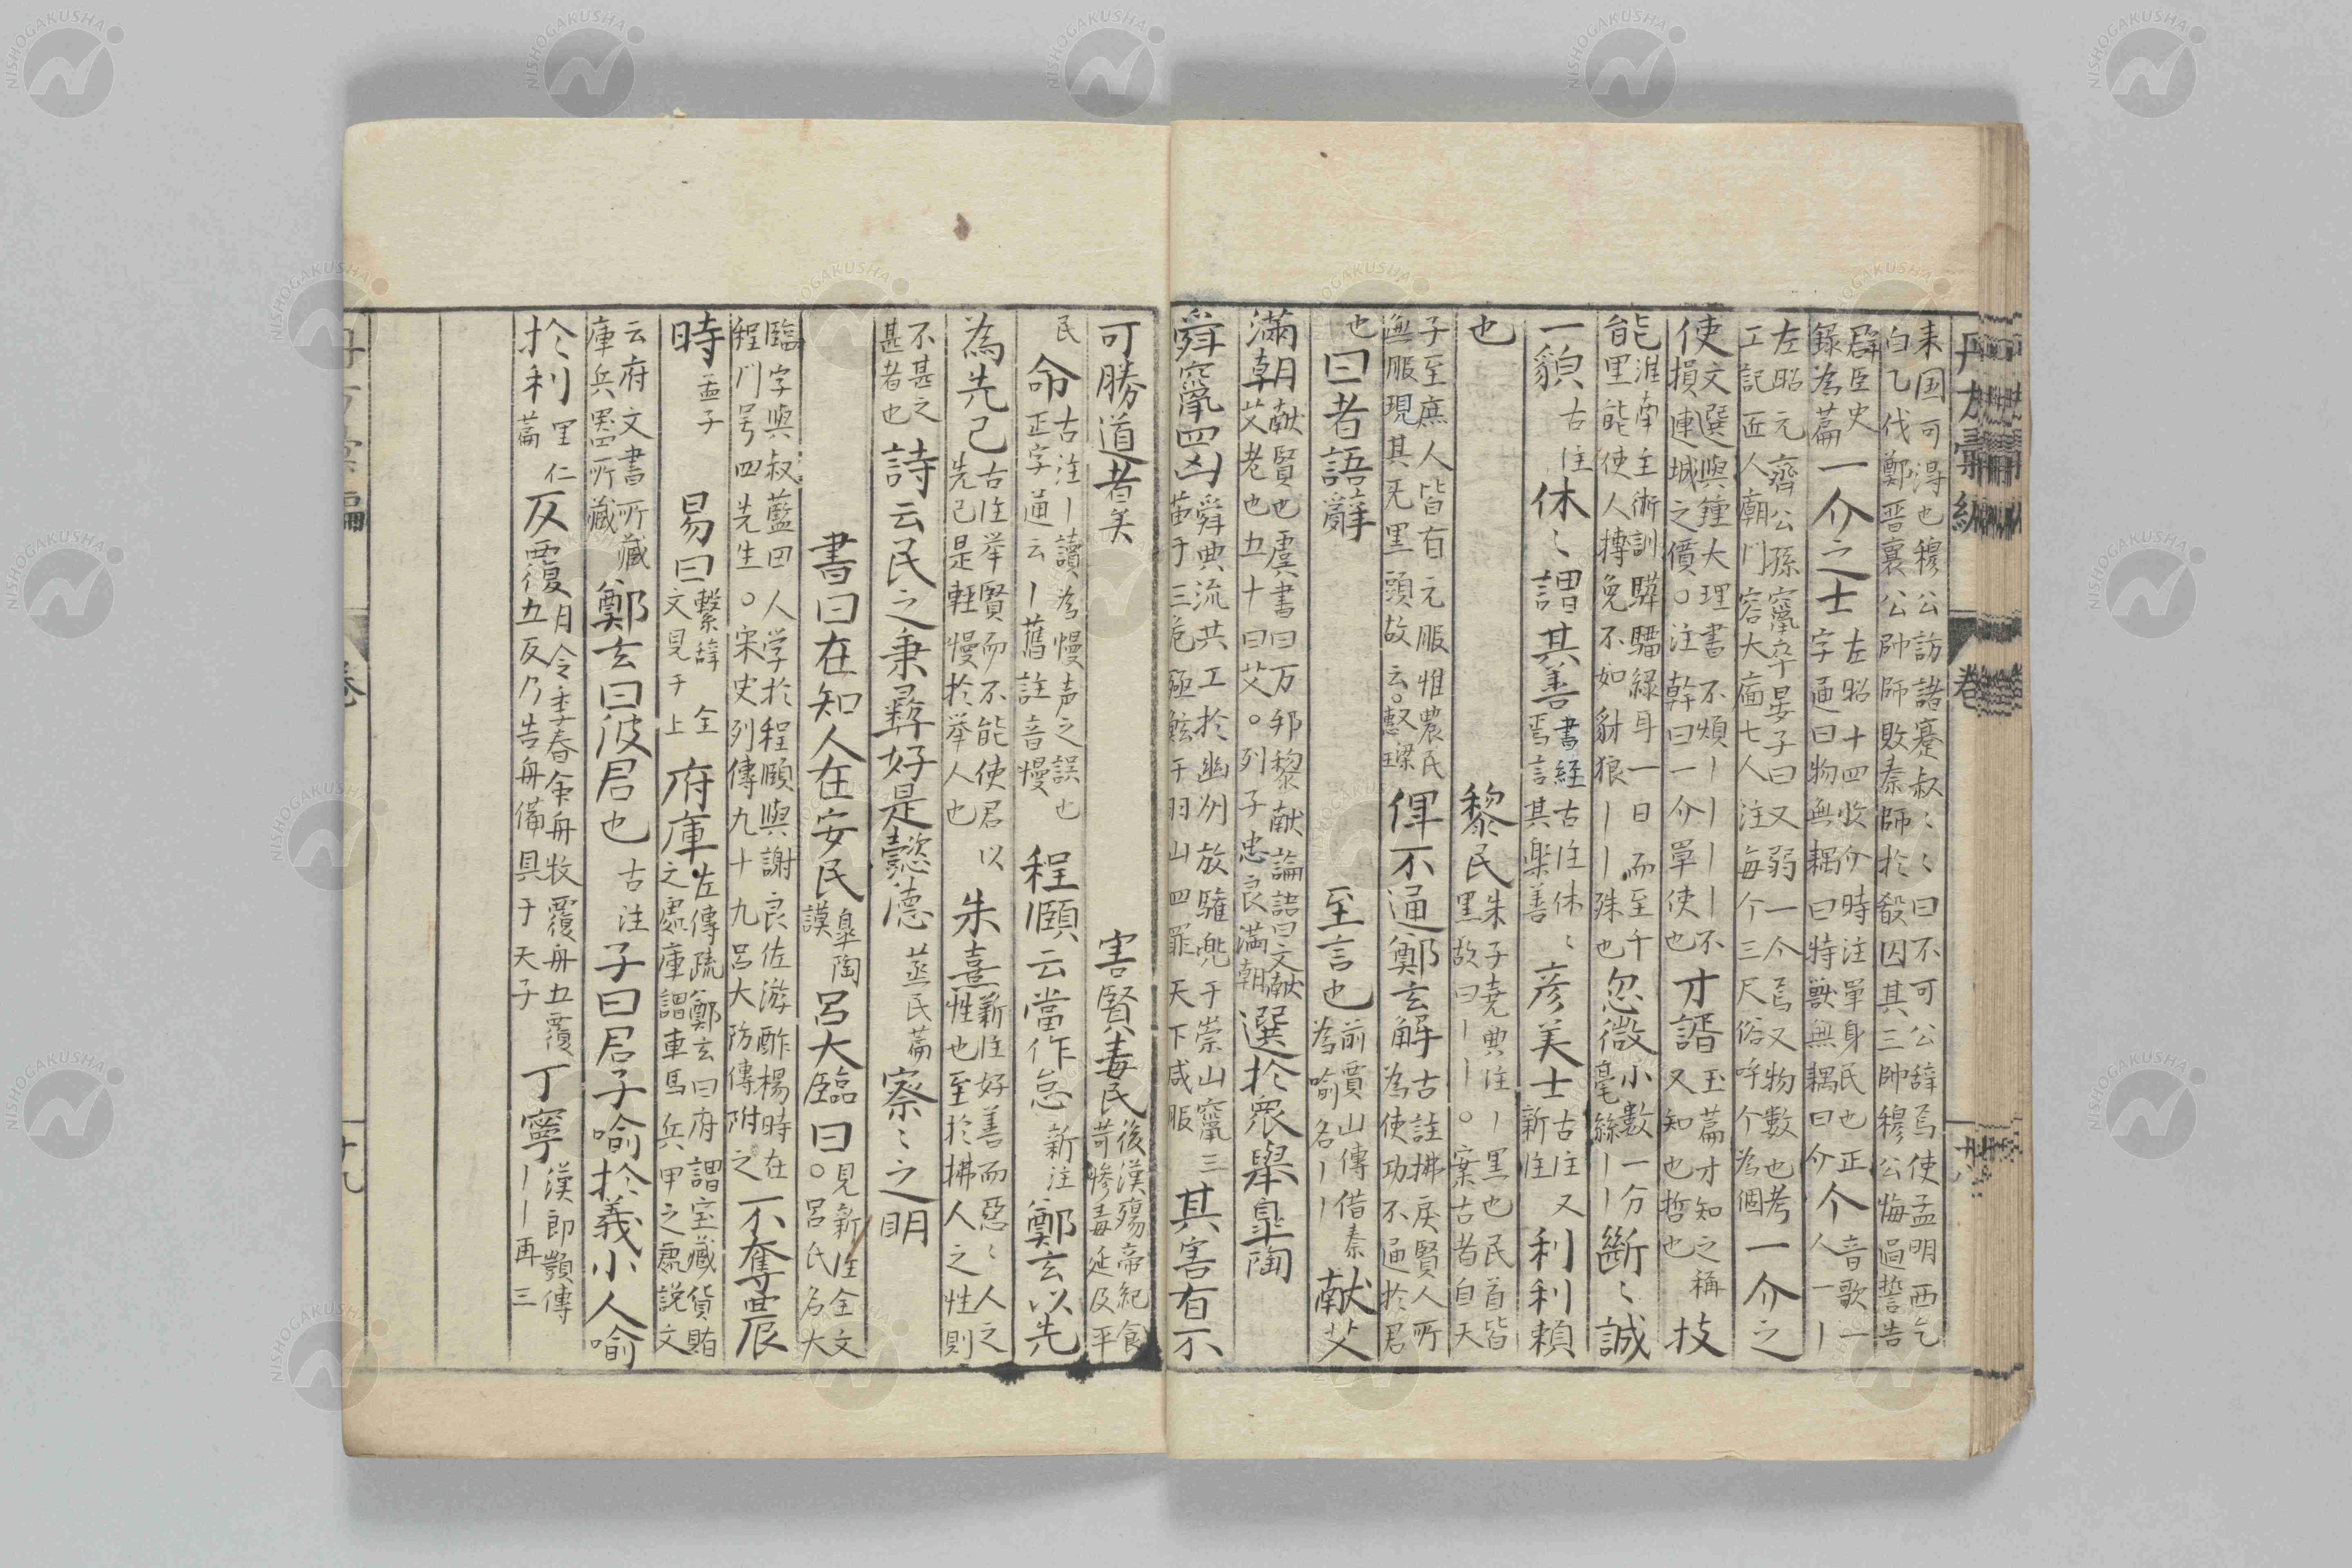 来国可得也穆公訪諸蹇叔〻〻曰不可公辞焉使孟明西乞
白乙伐鄭晋襄公帥師敗秦師於殽囚其三帥穆公悔過誓告
群臣史
録為篇
一介之士
左昭十四收介時注單身民也正
字通曰物無耦曰特獣無耦曰介
个
音歌一
人一丨
左昭元齊公孫竈卒晏子曰又弱一个焉又物數也考
工記匠人廟門容大扃七人注毎个三尺俗呼个為個
一介之
使
文選與鍾大理書不煩丨丨丨丨不
損連城之價○注幹曰一介單使也
才諝
玉篇才知之稱
又知也哲也
技
能
淮南主術訓騏驥緑耳一日而至千
里能使人搏兔不如豺狼丨丨殊也
忽微
小數一分
毫絲丨丨
斷〻誠
一貌
古注
休〻謂其善
書経古注休〻
焉言其楽善
彦美士
古注又
新注
利利頼
也
黎民
朱子堯典注丨黒也民首皆
黒故曰丨丨○案古者自天
子至庶人皆有元服惟農民
無服現其旡黒頭故云○愨璨
俾不通鄭玄解
古註拂戻賢人所
為使功不通於君
也
曰者語辭
至言也
前賈山傳借秦
為喻名丨丨
献艾
滿朝
献賢也虞書曰万邦黎献論語曰文献
艾老也五十曰艾○列子忠良満朝
選於衆舉皐陶
舜竄四凶
舜典流共工於幽州放驩兜于崇山竄三
苗于三危殛鯀于羽山四罪天下咸服
其害有不
可勝道者矣
害賢毒民
後漢殤帝紀食
苛惨毒延及平
民
命
古注丨讀為慢声之誤也
正字通云丨舊註音慢
程頤云當作怠
新注
鄭玄以先
為先己
古注挙賢而不能使君以
先己是軽慢於挙人也
朱熹
新注好善而惡〻人之
性也至於拂人之性則
不甚之
甚者也
詩云民之秉彝好是懿德
蒸民篇
察〻之明
書曰在知人在安民
皐陶
謨
呂大臨曰
見新注全文
○呂氏名大
臨字與叔藍田人学於程頤與謝良佐游酢楊時在
程門号四先生○宋史列傳九十九呂大防傳附之
不奪農
時
孟子
易曰
繫辞全
文見于上
府庫
左傳疏鄭玄曰府謂宝藏貨賄
之處庫謂車馬兵甲之處説文
云府文書所藏
庫兵噐所藏
鄭玄曰彼君也
古注
子曰君子喻於義小人喻
於利
里仁
篇
反覆
月令季春命舟牧覆舟五覆
五反乃告舟備具于天子
丁寧
漢郎顗傳
丨丨再三